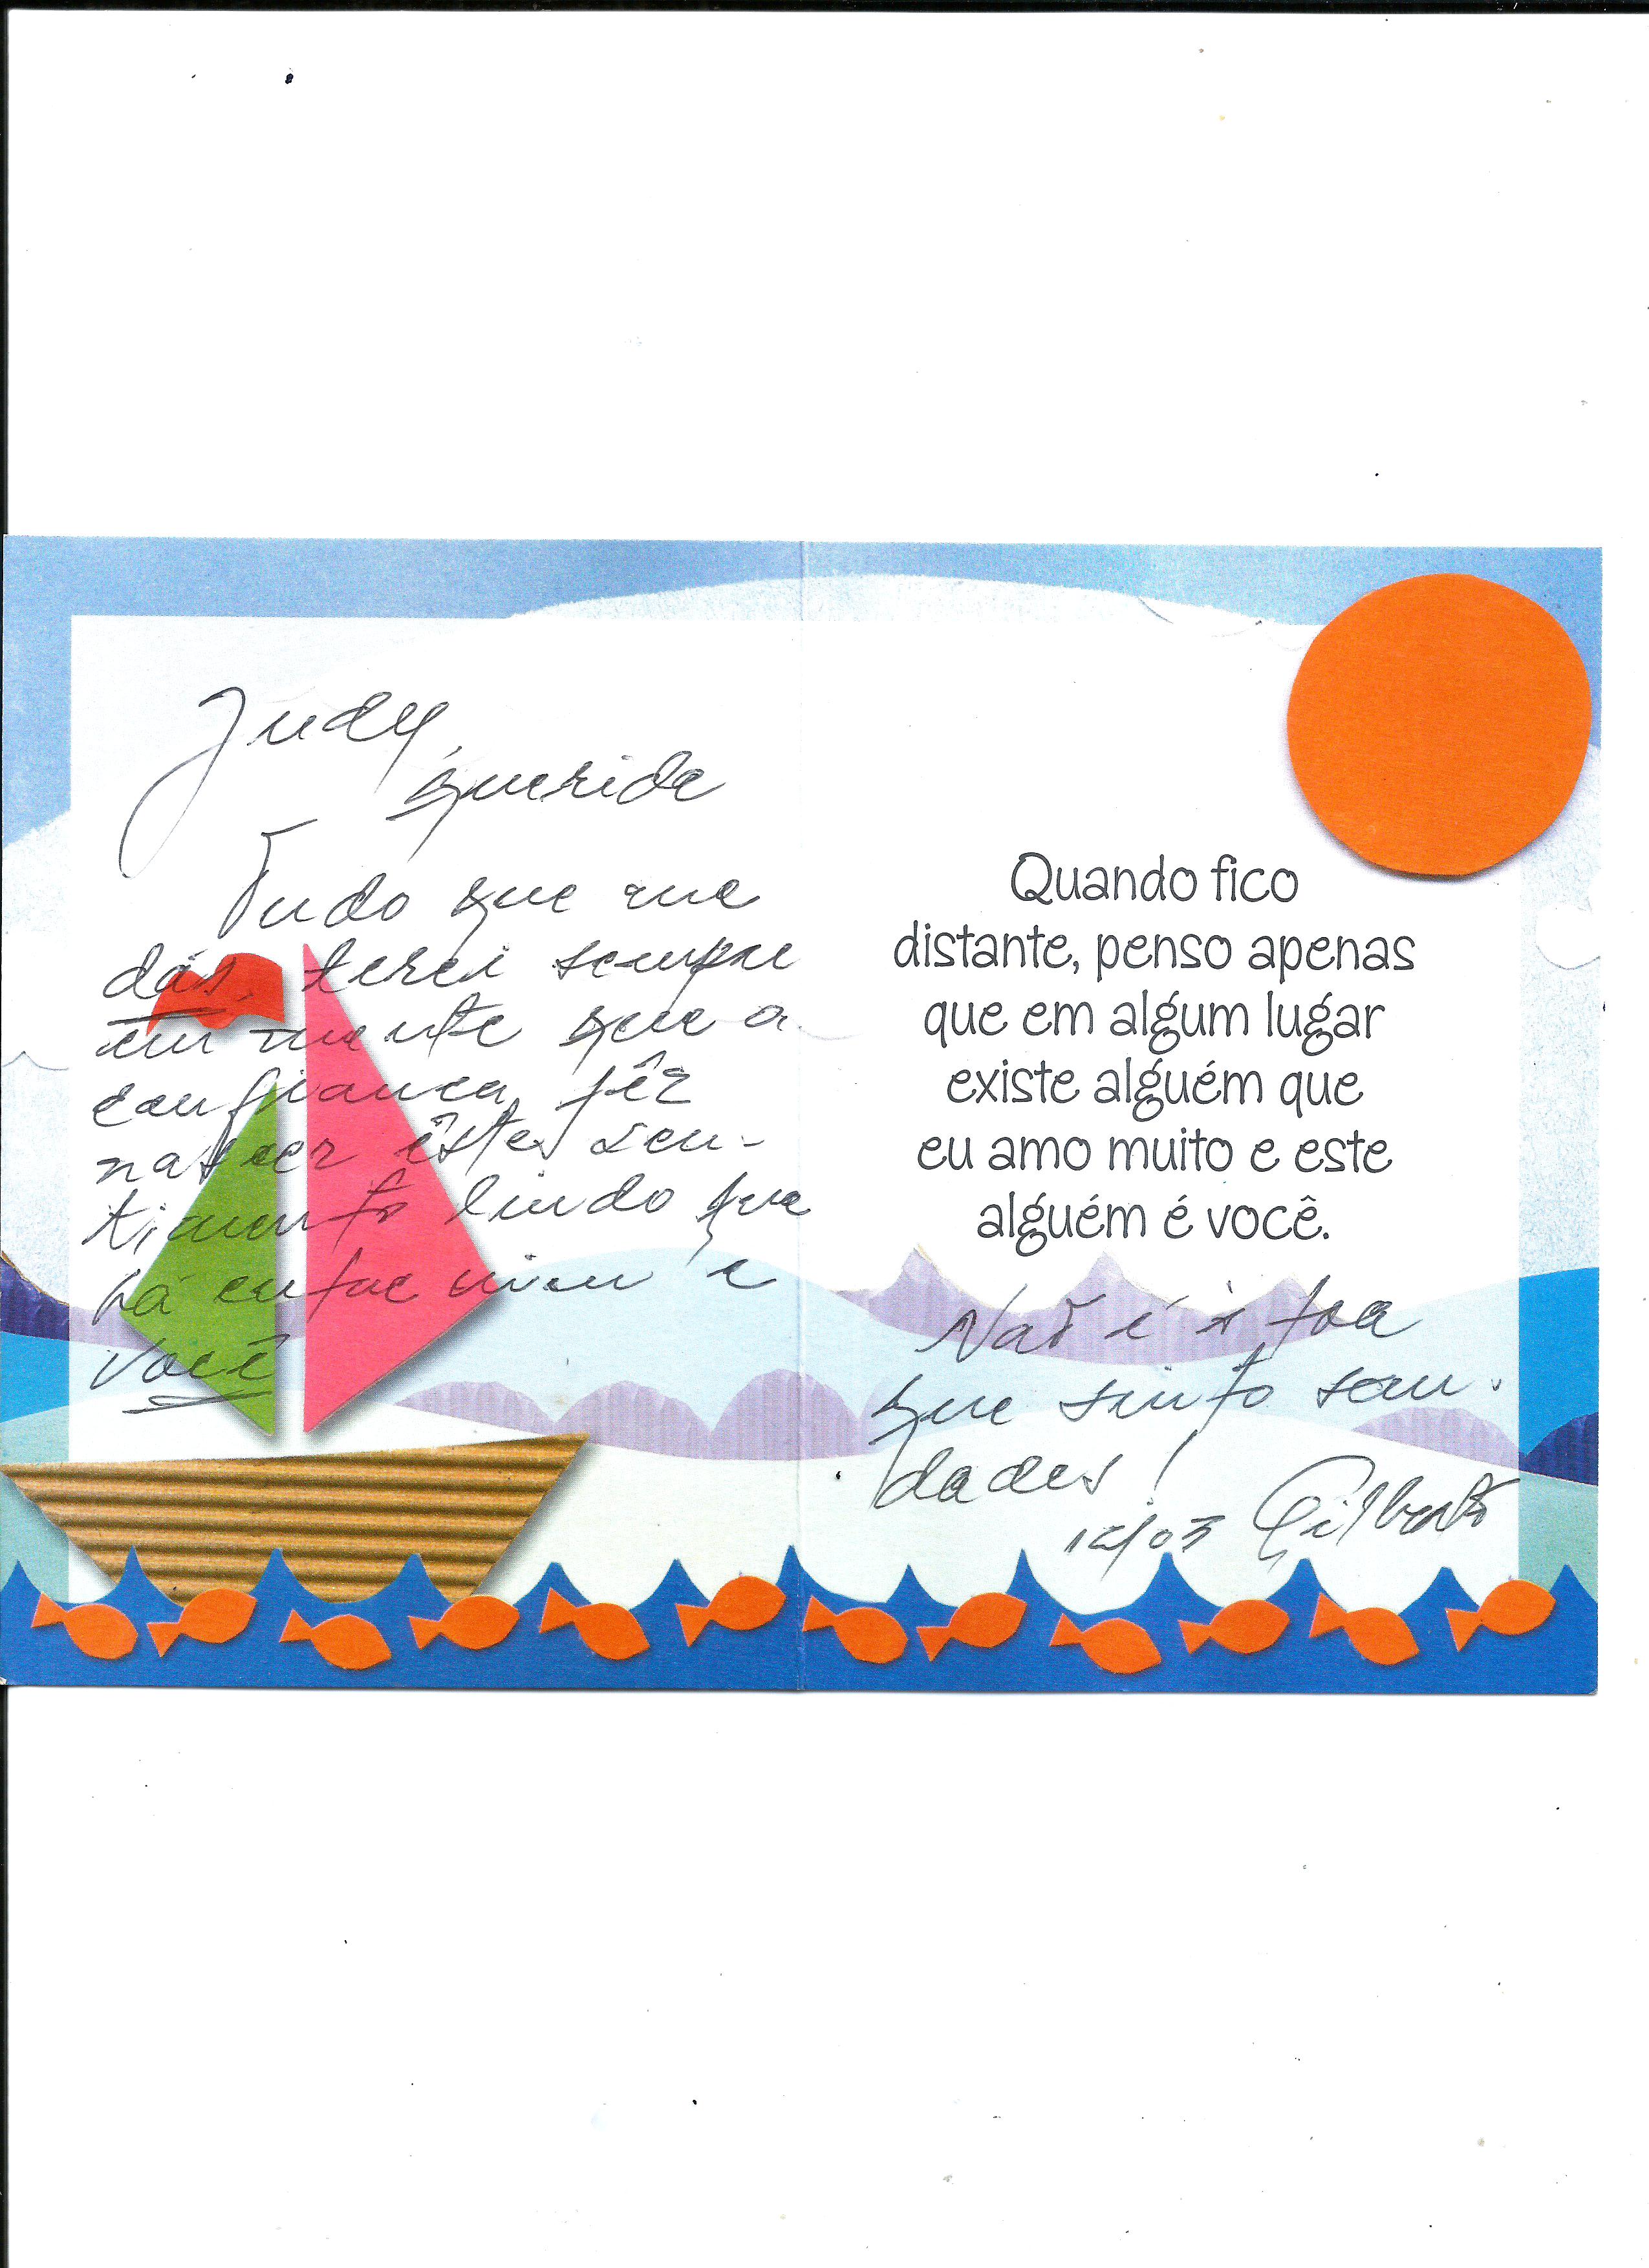 Judy,
querida
Tudo que me
dás, terei sempre
em mente que a
confiança, fêz
nascer êste sen-
timento lindo que
há entre mim e
você
Quando fico
distante, penso apenas
que em algum lugar
existe alguém que
eu amo muito e este
alguém é você.
Não é à toa
que sinto sau-
dades!
12/03 Gilberto